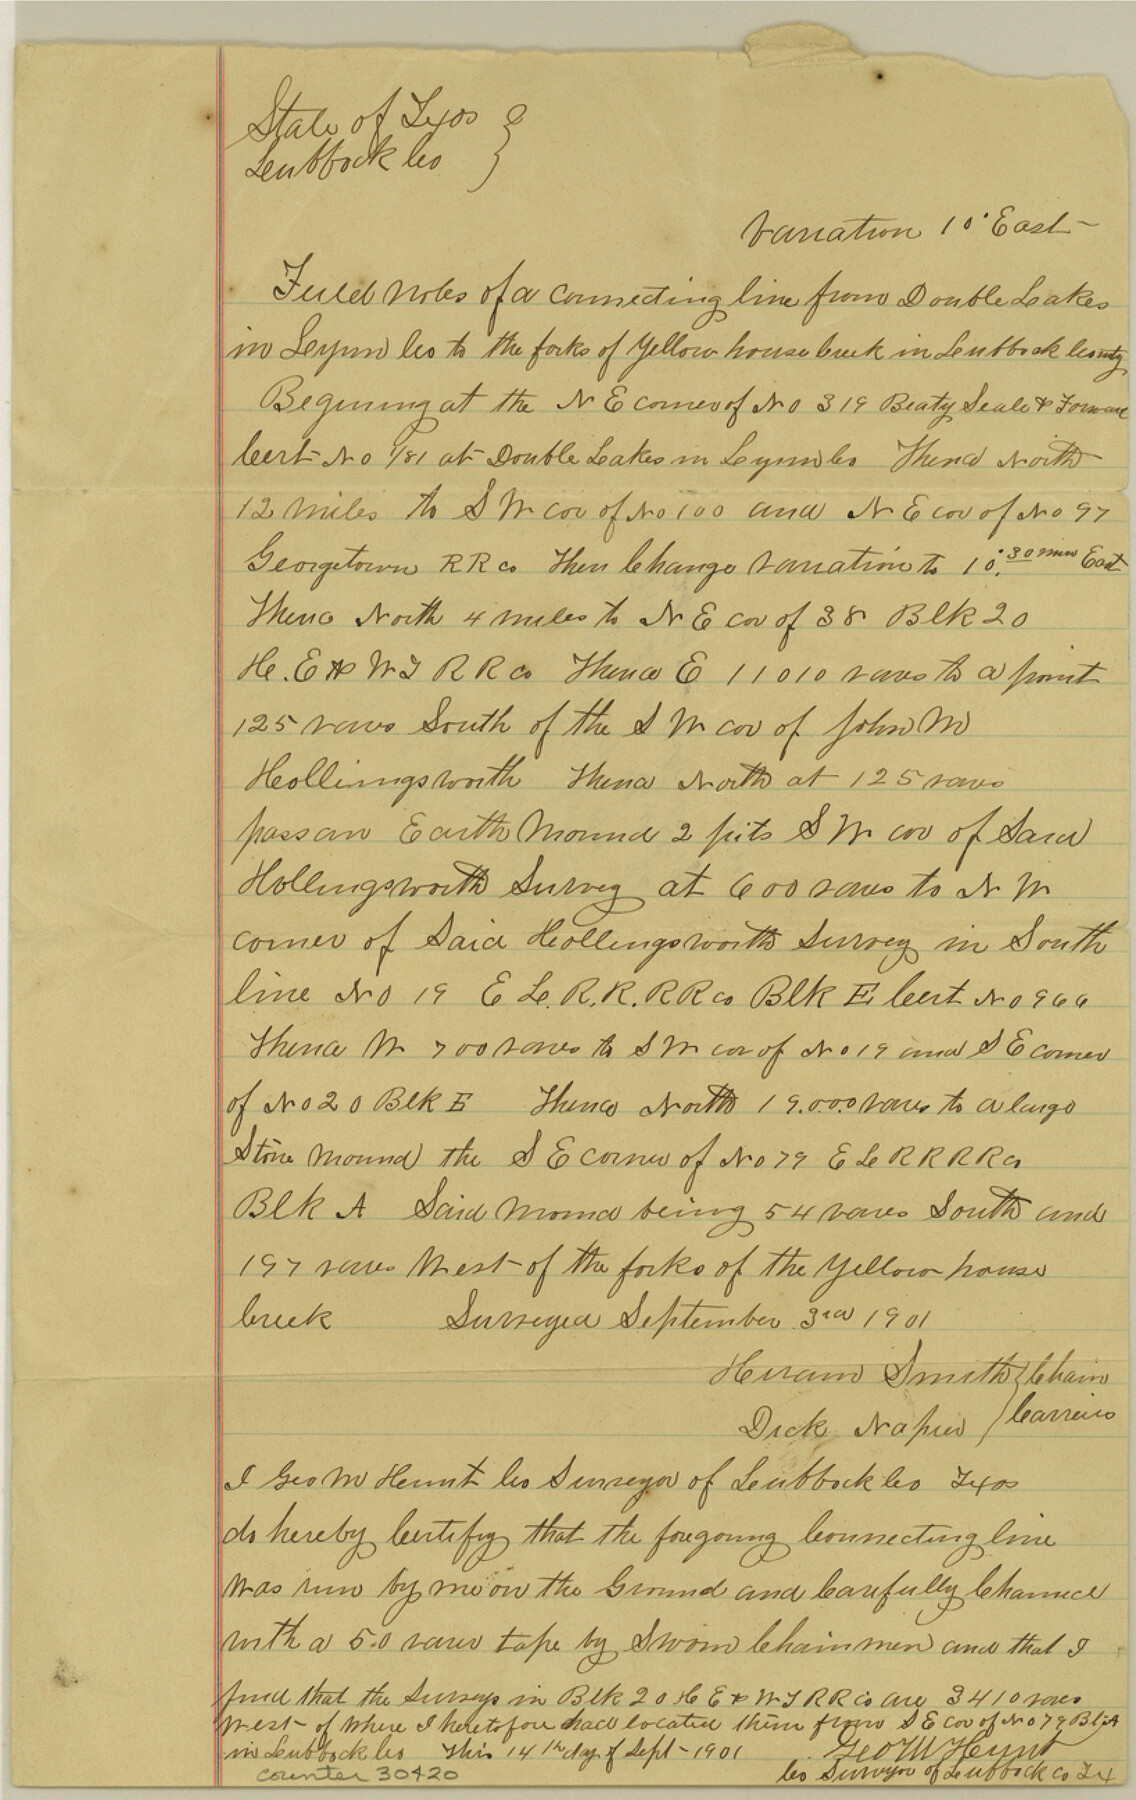 State of Texas }
Lubbock Co
Variation 10° East
Field Notes of a Connecting line from Double Lakes
in Lynn Co to the forks of Yellow house Creek in Lubbock County
Begining at the N E corner of No 319 Beaty Seale & Forwood
Cert No 1/81 at Double Lakes in Lynn Co Thence North
12 miles to S W cor of No 100 and N E cor of No 97
Georgetown R R Co Then Change Variation to 10° 30 min East
Thence North 4 miles to N E cor of 38 Blk 20
H. E & W T R R Co Thence E 11010 varas to a point
125 varas South of the S W cor of John W
Hollingsworth Thence North at 125 varas
pass an Earth Mound 2 pits S W cor of Said
Hollingsworth Survey at 600 varas to N W
corner of Said Hollingsworth Survey in South
line No 19 E L. R. R. R R Co Blk E Cert No 966
Thence W 700 varas to S W cor of No 19 and S E corner
of No 20 Blk E Thence North 19.000 varas to a large
Stone Mound the S E corner of No 79 E L R R R R Co
Blk A Said Mound being 54 varas South and
197 varas West of the forks of the Yellow house
Creek Surveyed September 3rd 1901
Hiram Smith } Chain
Dick Napier } Carriers
I Geo M Hunt Co Surveyor of Lubbock Co Texas
do hereby Certify that the foregoing Connecting line
was run by me on the Ground and Carefully Chained
with a 50 varas tape by Sworn Chain men and that I
find that the Surveys in Blk 20 H E & W T R R Co are 3410 varas
West of where I heretofore had located them from S E cor of No 79 Blk A
in Lubbock Co This 14th day of Sept 1901 Geo M Hunt
counter 30420 Co Surveyor of Lubbock Co Tx